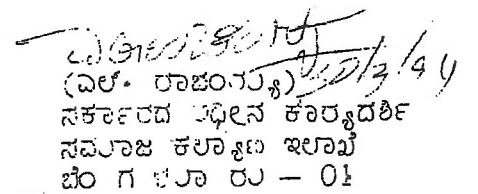 30/3/94
(ಎಲ್. ರಾಜಂಗಯ್ಯ)
ಸರ್ಕಾರದ ಅಧೀನ ಕಾರ್ಯದರ್ಶಿ
ಸಮಾಜ ಕಲ್ಯಾಣ ಇಲಾಖೆ
ಬೆಂ ಗ ಳೂ ರು - 01